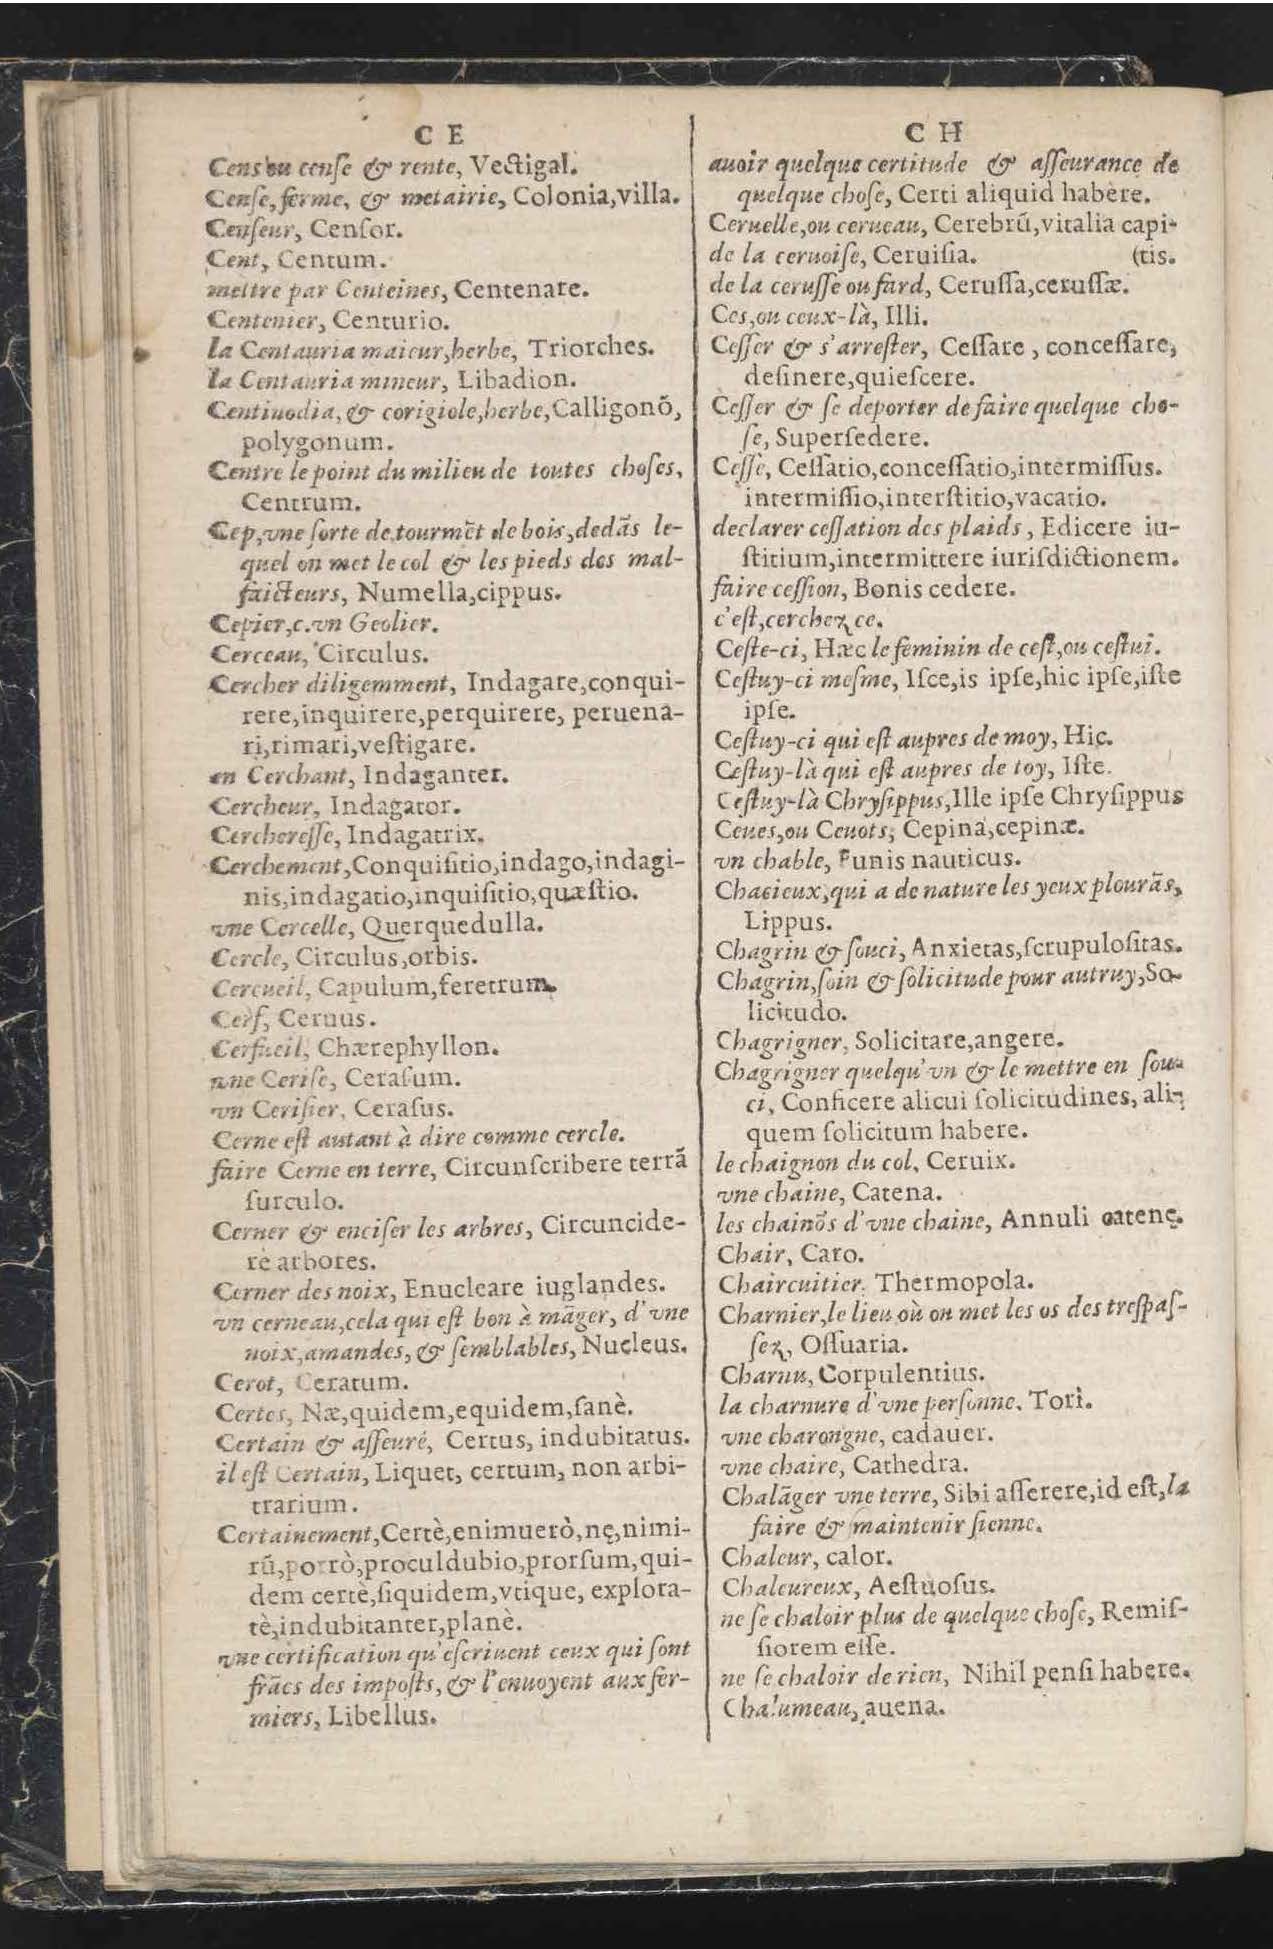 C E
Cens ou cense & rente, Vectigal.
Cense, ferme, & metairie, Colonia, villa.
Censeur, Censor.
Cent, Centum.
mettre par Centeines, Centenare.
Centenier, Centurio.
la Centauria maieur, herbe, Triorches.
la Centauria mineur, Libadion.
Centinodia, & corigiole, herbe, Calligonõ,
polygonum.
Centre le point du milieu de toutes choses,
Centrum.
Cep, vne sorte de tourmẽt de bois, dedãs le-
quel on met le col & les pieds des mal-
faicteurs, Numella, cippus.
Cepier, c. vn Geolier.
Cerceau, Circulus.
Cercher diligemment, Indagare, conqui-
rere, inquirere, perquirere, peruena-
ri, rimari, vestigare.
en Cerchant, Indaganter.
Cercheur, Indagator.
Cercheresse, Indagatrix.
Cerchement, Conquisitio, indago, indagi-
nis, indagatio, inquisitio, quæstio.
vne Cercelle, Querquedulla.
Cercle, Circulus, orbis.
Cercueil, Capulum, feretrum.
Cerf, Ceruus.
Cerfueil, Chærephyllon.
vne Cerise, Cerasum.
vn Cerisier, Cerasus.
Cerne est autant à dire comme cercle.
faire Cerne en terre, Circunscribere terrã
surculo.
Cerner & enciser les arbres, Circuncide-
re arbores.
Cerner des noix, Enucleare iuglandes.
vn cerneau, cela qui est bon à mãger, d'vne
noix, amandes, & semblables, Nucleus.
Cerot, Ceratum.
Certes, Næ, quidem, equidem, sanè.
Certain & asseuré, Certus, indubitatus.
il est Certain, Liquet, certum, non arbi-
trarium.
Certainement, Certè, enimuerò, nę, nimi-
rũ, porrò, proculdubio, prorsum, qui-
dem certè, siquidem, vtique, explora-
tè, indubitanter, planè.
vne certification qu'escriuent ceux qui sont
frãcs des imposts, & l'enuoyent aux fer-
miers, Libellus.
C H
auoir quelque certitude & asseurance de
quelque chose, Certi aliquid habere.
Ceruelle, ou cerueau, Cerebrũ, vitalia capi-
de la ceruoise, Ceruisia. (tis.
de la cerusse ou fard, Cerussa, cerussæ.
Ces, ou ceux-là, Illi.
Cesser & s'arrester, Cessare, concessare,
desinere, quiescere.
Cesser & se deporter de faire quelque cho-
se, Supersedere.
Cesse, Cessatio, concessatio, intermissus.
intermissio, interstitio, vacatio.
declarer cessation des plaids, Edicere iu-
stitium, intermittere iurisdictionem.
faire cession, Bonis cedere.
c'est, cerchez ce.
Ceste-ci, Hæc le feminin de cest, ou cestui.
Cestuy-ci mesme, Isce, is ipse, hic ipse, iste
ipse.
Cestuy-ci qui est aupres de moy, Hic.
Cestuy-là qui est aupres de toy, Iste.
Cestuy-là Chrysippus, Ille ipse Chrysippus
Ceues, ou Ceuots, Cepina, cepinæ.
vn chable, Funis nauticus.
Chacieux, qui a de nature les yeux plourãs,
Lippus.
Chagrin & souci, Anxietas, scrupulositas.
Chagrin, soin & solicitude pour autruy, So-
licitudo.
Chagrigner, Solicitare, angere.
Chagrigner quelqu'vn & le mettre en sou-
ci, Conficere alicui solicitudines, ali-
quem solicitum habere.
le chaignon du col, Ceruix.
vne chaine, Catena.
les chainõs d'vne chaine, Annuli catenę.
Chair, Caro.
Chaircuitier, Thermopola.
Charnier, le lieu où on met les os des trespas-
sez, Ossuaria.
Charnu, Corpulentius.
la charnure d'vne personne, Tori.
vne charongne, cadauer.
vne chaire, Cathedra.
Chalãger vne terre, Sibi asserere, id est, la
faire & maintenir sienne.
Chaleur, calor.
Chaleureux, Aestuosus.
ne se chaloir plus de quelque chose, Remis-
siorem esse.
ne se chaloir de rien, Nihil pensi habere.
Chalumeau, auena.